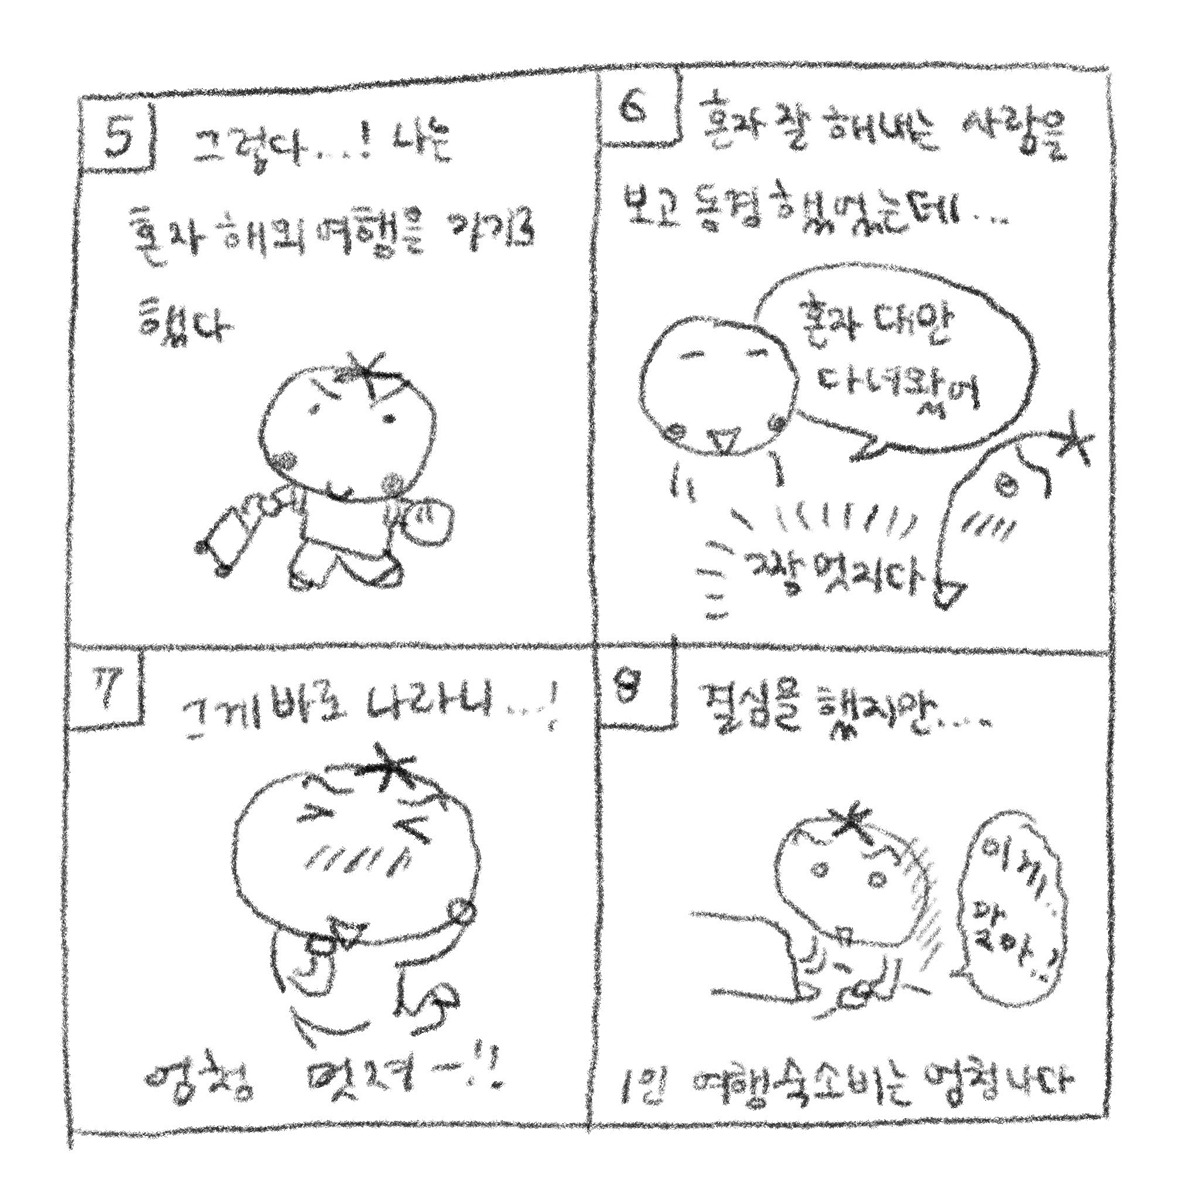 5
그렇다...! 나는
혼자 해외여행을 가기로
했다
6
혼자 잘 해내는 사람을
보고 동경했었는데...
혼자 대만
다녀왔어
짱 멋지다
7
그게 바로 나라니...!
엄청 멋져-!!
8
결심을 했지만....
이게..
맞아..?
1인 여행숙소비는 엄청나다